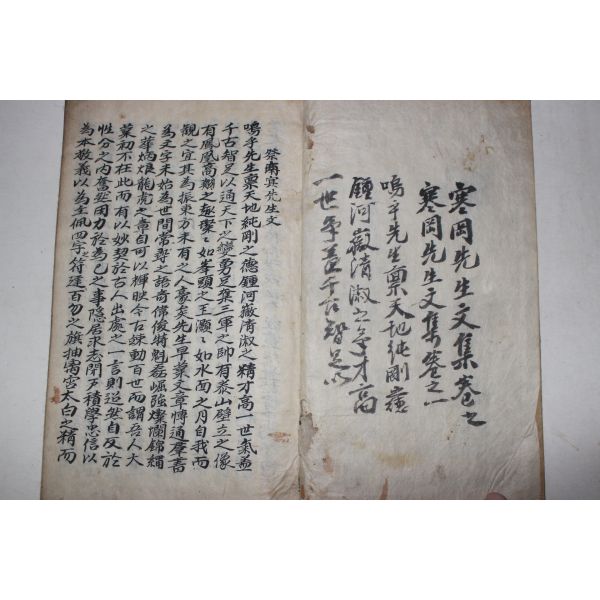 寒岡先生文集卷之
寒岡先生文集卷之一
嗚乎先生禀天地純剛
鍾河嶽清淑之才高
一世蓋千古智足以
祭南冥先生文
嗚乎先生稟天地純剛之德鍾河嶽清淑之精才高一世氣盖
千古智足以通天下之變勇足奪三軍之帥有泰山壁立之像
有鳳凰高翔之趣璨〻如峯頭之玉灝〻如水面之月自我而
觀之宜其為振東方未有之人豪矣先生早業文章博通羣書
為文字未始為世間常尋之語奇偉俊特魁磊崛強燦爛錦繡
之華炳烺龍虎之章自可以輝映今古竦動百世而謂吾人大
業初不在此而有以妙契於古人出處之一言則迢然自反於
性分之內奮然用力於為己之事隱居求志閉戶積學忠信以
為本敬義以為主佩四字符建百勿之旗抽霄雲太白之精而